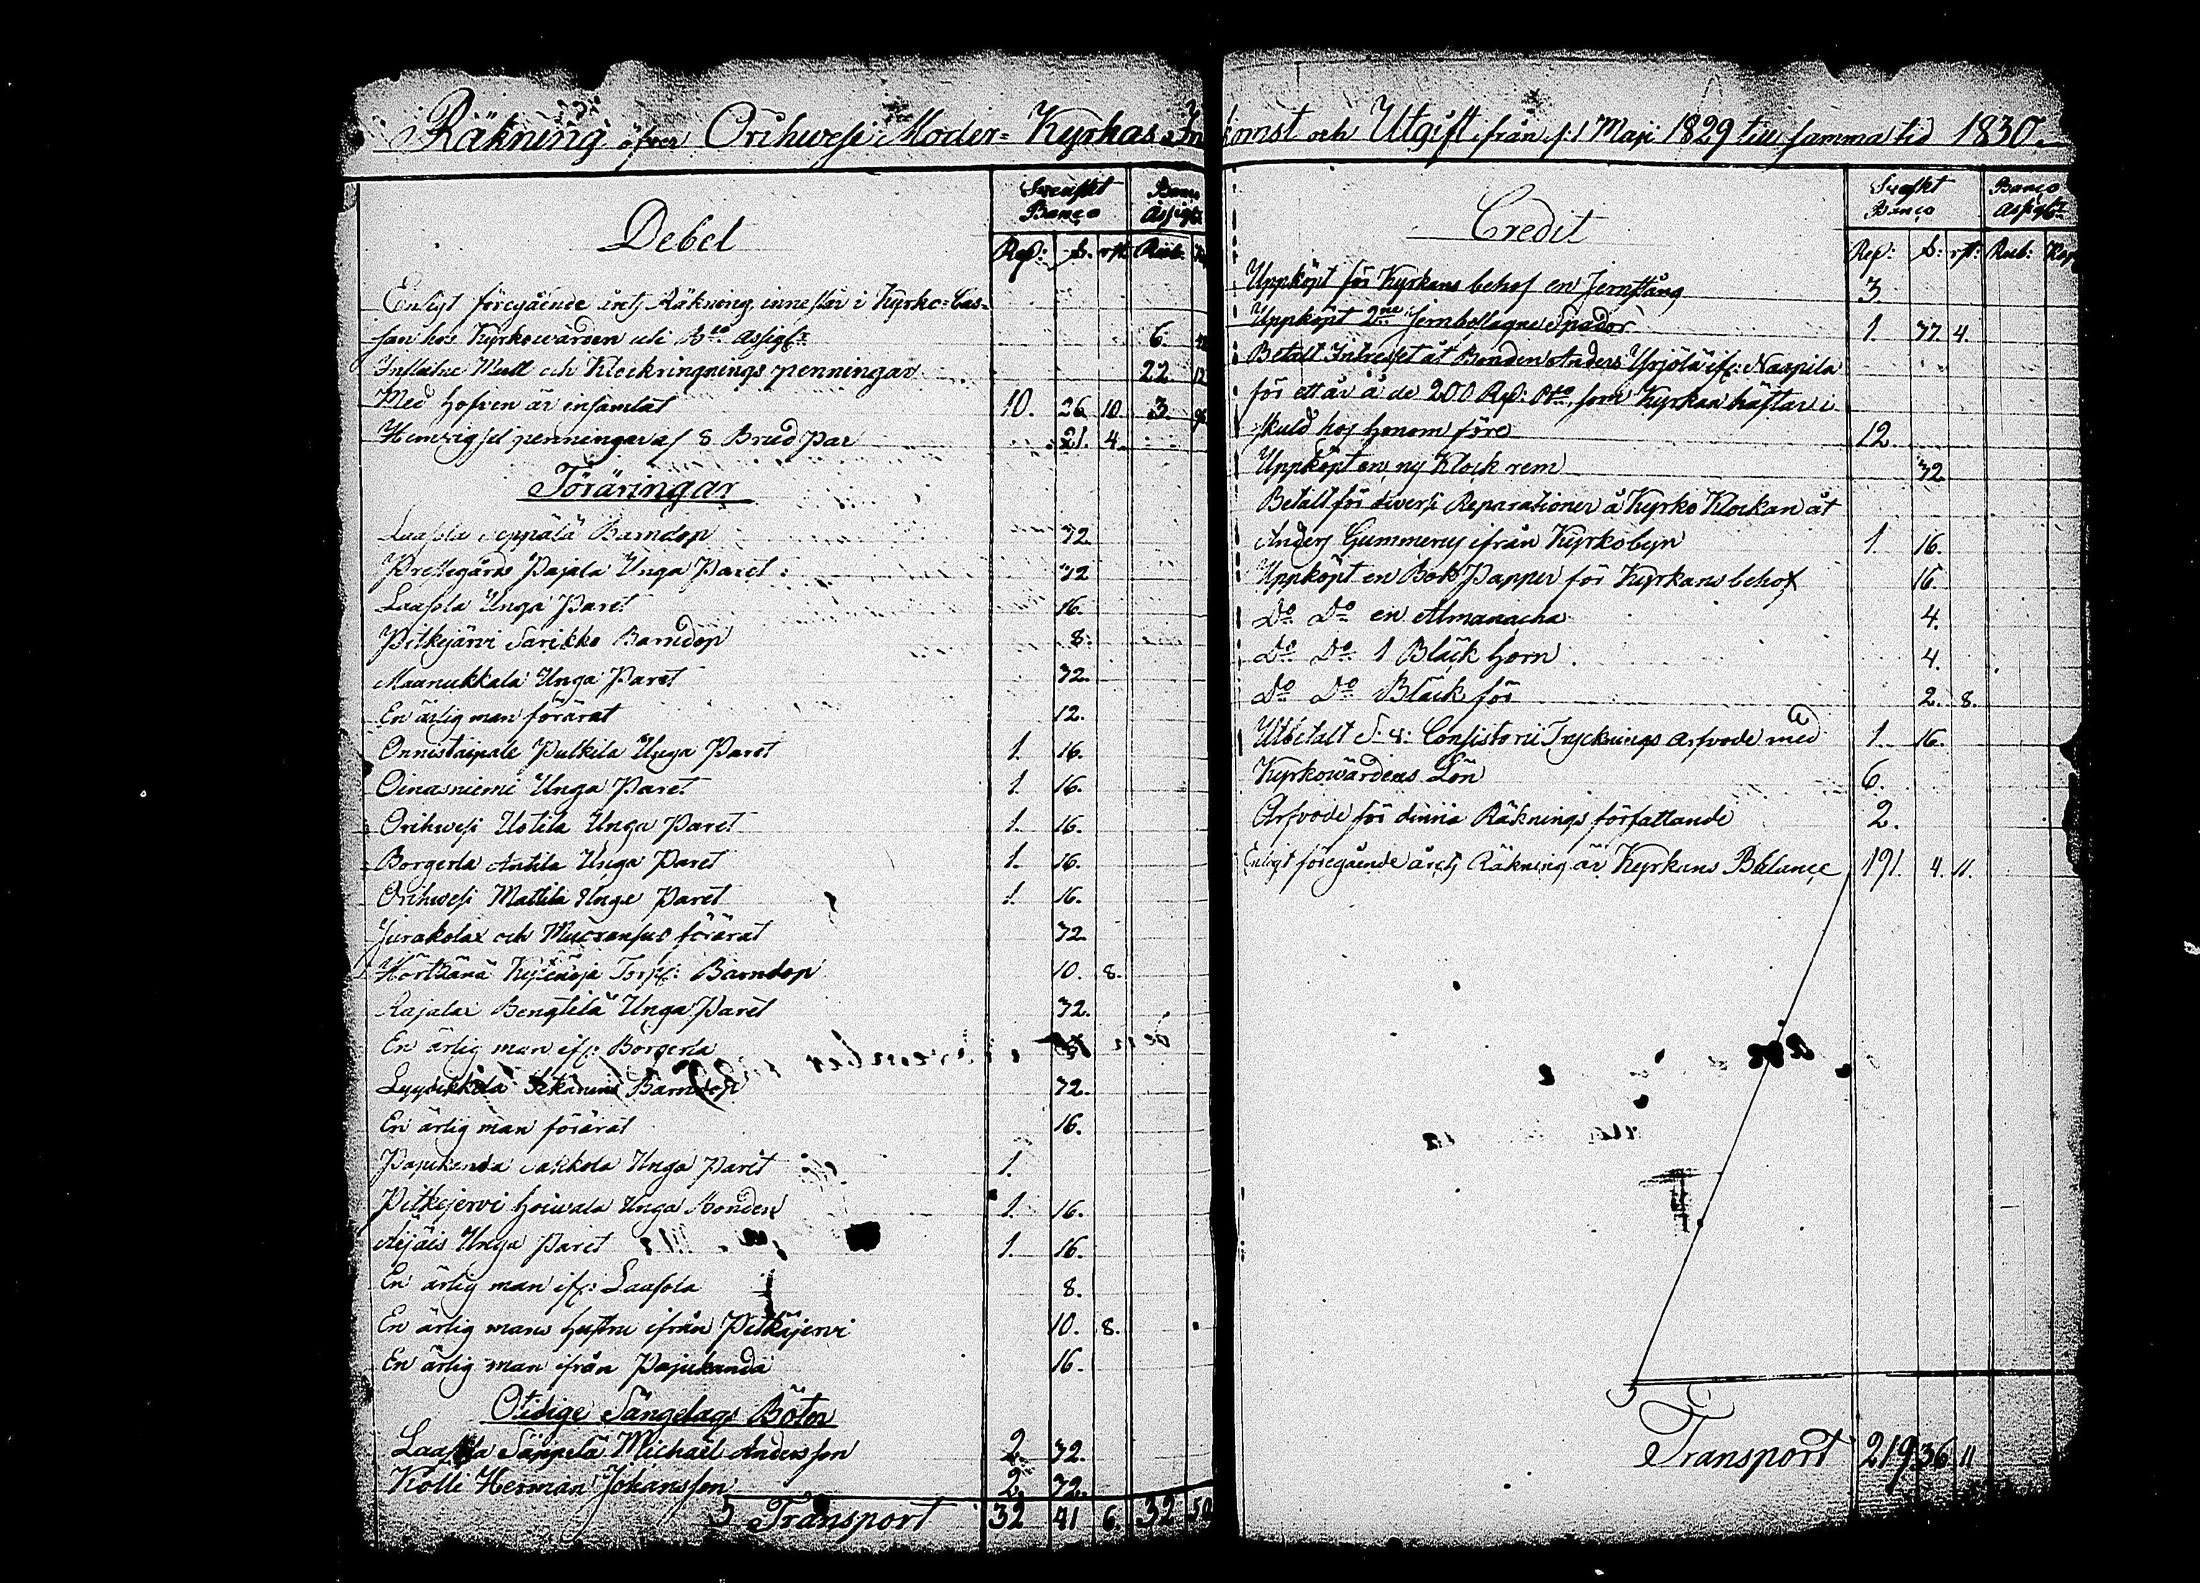 Räkning öfver Orihwesi Moder= Kyrkas Inkomst och Utgift ifrån d: 1 Maji 1829 till samma tid 1830.
Debet
Svenskt Banco
Banco Assigt:
Rd: s. rst: Rub:
Enligt föregående årets Räkning innestår i Kyrko=Cas=
san hos Kyrkowärden uti B:co Assigt: 6.
Influtne Mull och Klockringnings penningar 22. 12
Med hofven är insamlat 10. 26. 10. 3.
Hemvigsel penningar af 8 Brud Par 21. 4.
Föräringar
Laasola Seppälä Barndop 32.
Prestegårds Pajala Unga Paret: 32
Laasola Unga Paret 16.
Pitkejärvi Sarikko Barndop 8.
Maanukkala Unga Paret 32.
En ärlig man förärat 12.
Onnistaipale Pulkila Unga Paret 1. 16.
Oinasniemi Unga Paret 1. 16.
Orihwesi Uotila Unga Paret 1. 16.
Borgerla Antila Unga Paret 1. 16.
Orihwesi Mattila Unge Paret 1. 16.
förärat 32.
Torp: Barndop 10. 8.
Bengtilä Unga Paret 32.
En ärlig man ifr: Borgerla
Lyytikkälä Barndop 32.
En ärlig man förärat 16.
Pajukanda Unga Paret 1.
Pitkejervi Hoivala Unga Bonden 1. 16.
Unga Paret 1. 16.
En ärlig man ifr: Laasola 8.
En ärlig mans hustru ifrån Pitkäjervi 10. 8.
En ärlig man ifrån Pajukanda 16.
Otidige Sängelags Böter
Laasola Sängelä Michael Andersson 2. 32.
Kolli Herman Johansson 2. 32.
Transport 32 41 6. 32 50
Credit
Svenskt Banco
Banco Assigt:
Rd: s: rst: Rub: Kop
Uppköpt för Kyrkans behof en Jernstång 3.
Uppköpt 2ne Jernbeslagne Spador 1. 37. 4.
Betalt Intresset åt Bonden Anders Yrjölä ifr: Naappila
för ett år å de 200 Rd: B:co, som Kyrkan häftar i
skuld hos honom före 12.
Uppköpt en ny Klock rem 32.
Betalt för diverse Reparationer å Kyrko Klockan åt
Anders Gummerus ifrån Kyrkobyn 1. 16.
Uppköpt en Bok Papper för Kyrkans behof 16.
D:o D:o en Almanacha 4.
D:o D:o 1 Bläck horn 4.
D:o D:o Bläck för 2. 8.
Utbetalt Consistorii Trycknings arfvode med 1. 16.
Kyrkowärdens Lön 6.
Arfvode för dinna Räknings författande 2.
Enligt föregående årets Räkning är Kyrkans Balance 191. 4. 11.
Transport 219 36 11